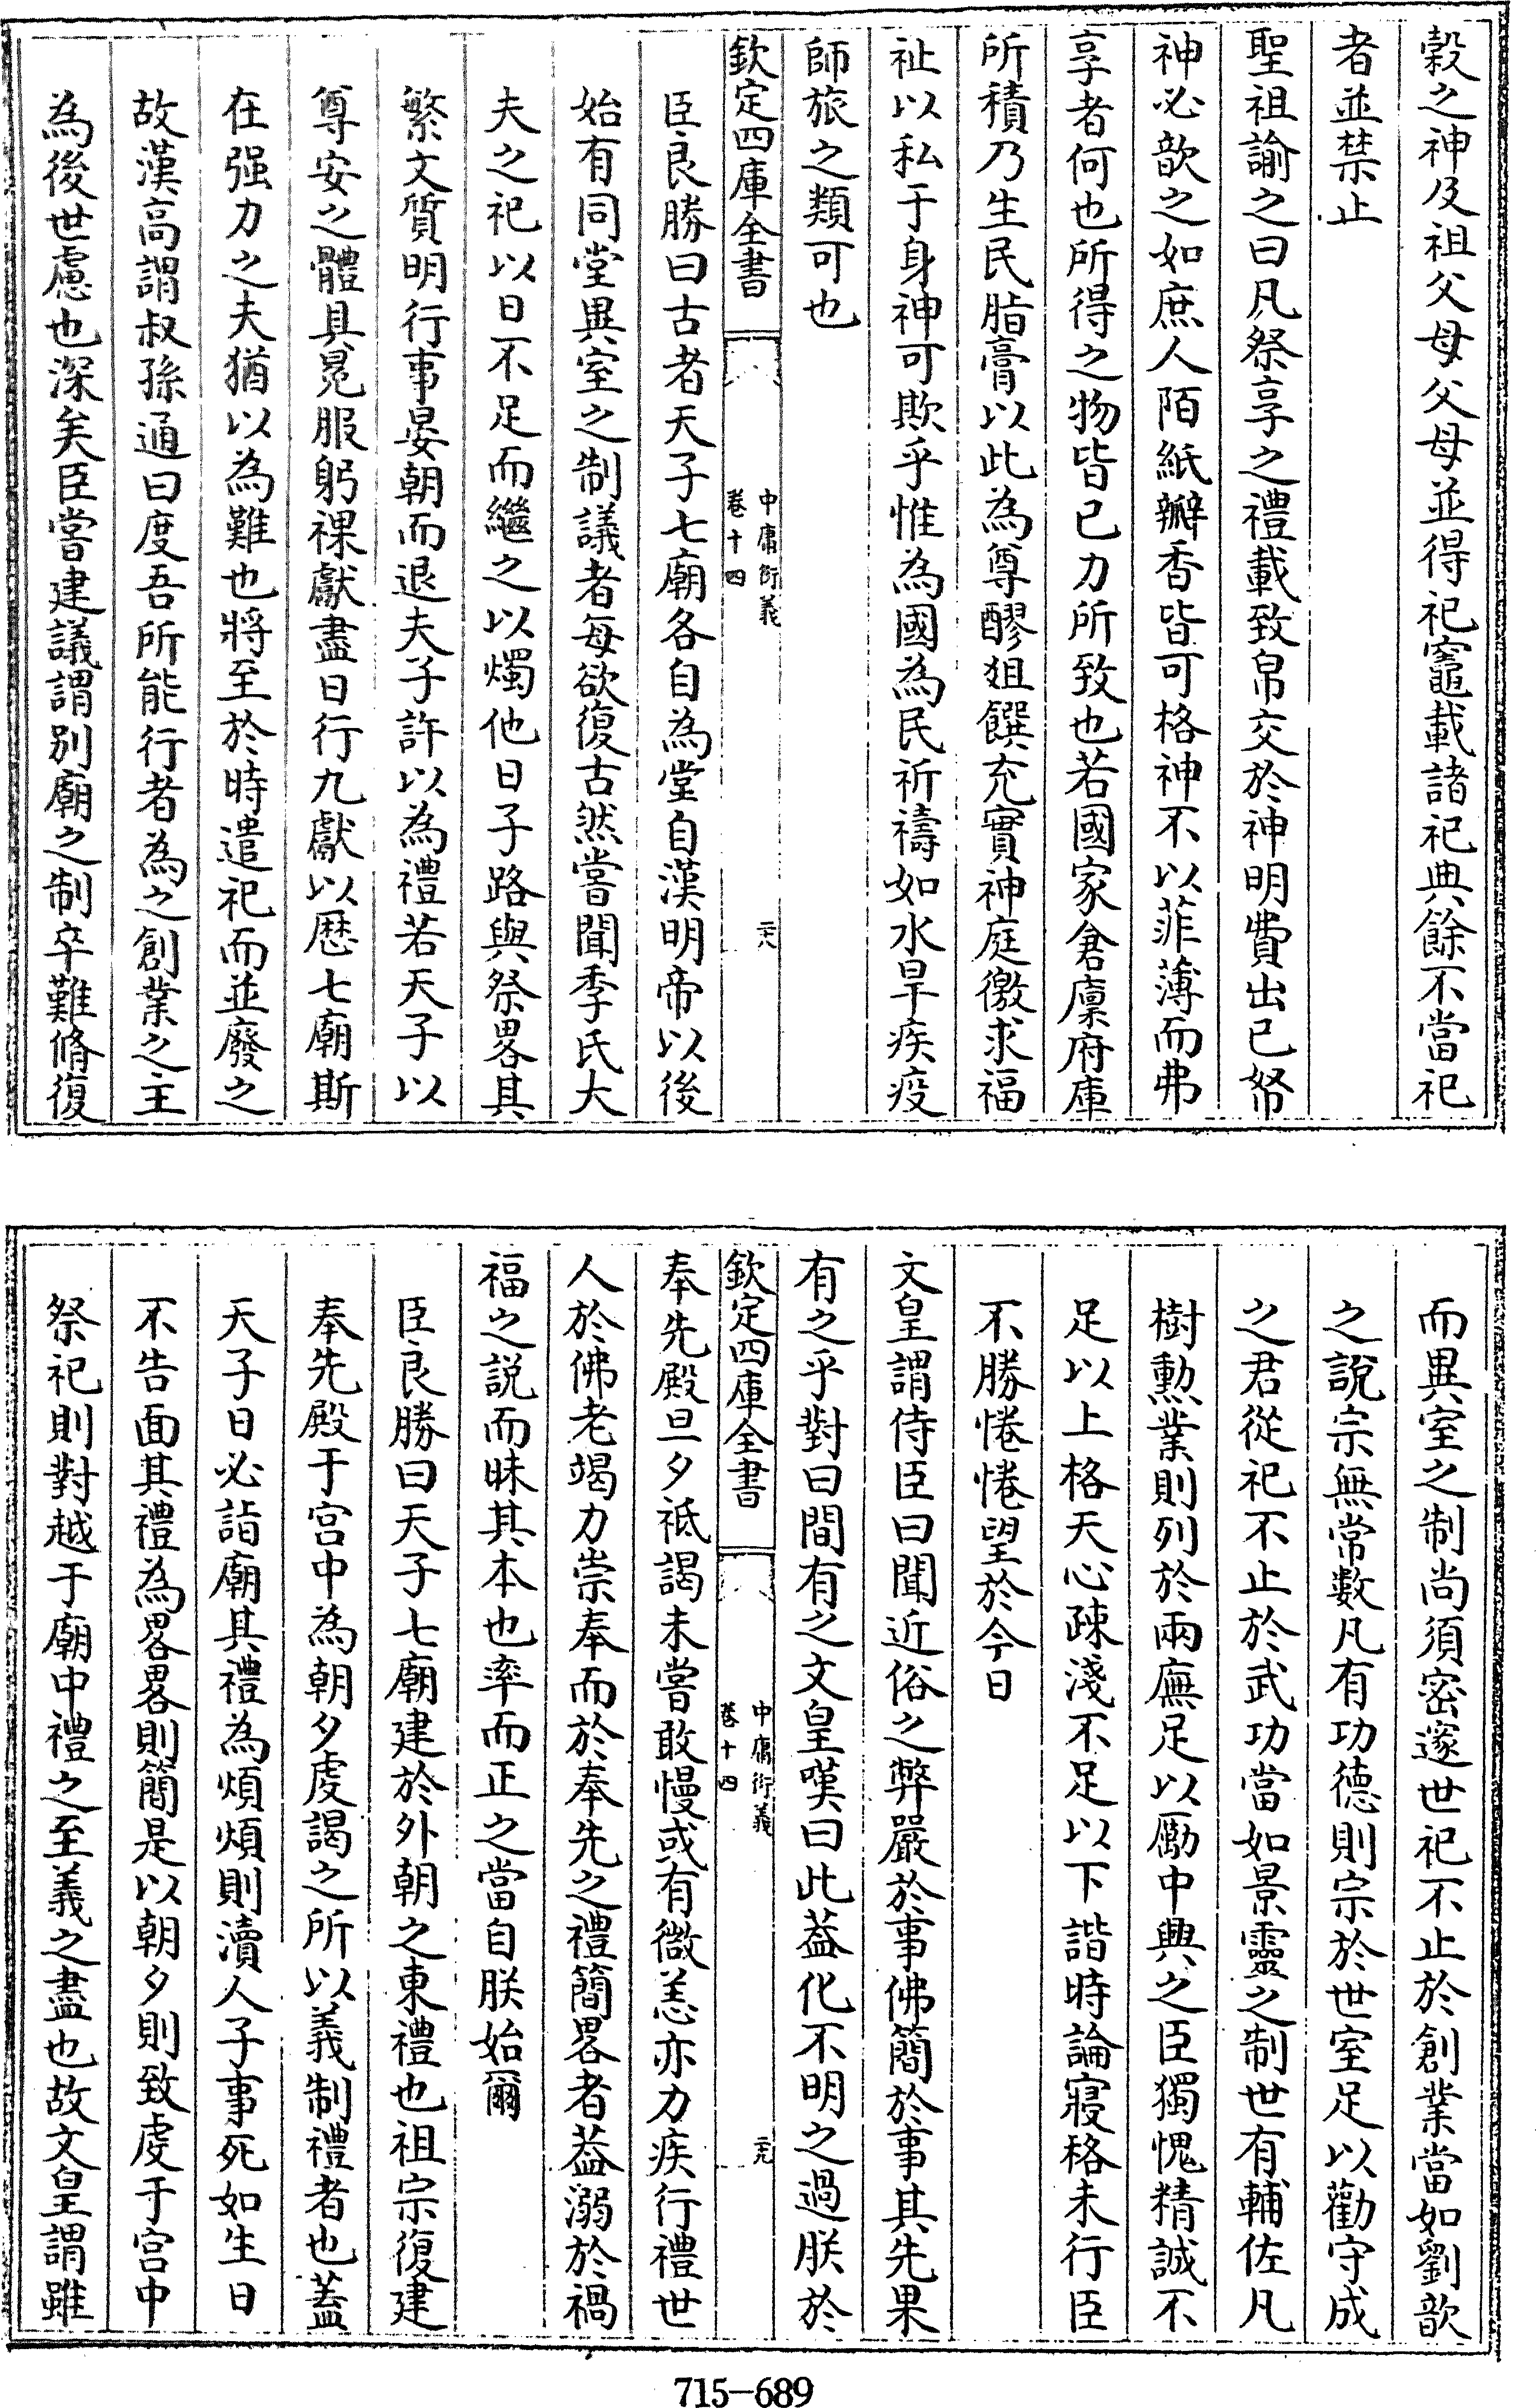 榖之神及祖父母父母並得祀竈載諸祀典餘不當祀
者並禁止
聖祖諭之曰凡祭享之禮載致帛交於神明費出已帑
神必歆之如庶人陌紙瓣香皆可格神不以菲薄而弗
享者何也所得之物皆已力所致也若國家倉廩府庫
所積乃生民脂膏以此為尊醪俎饌充實神庭徼求福
祉以私于身神可欺乎惟為國為民祈禱如水旱疾疫
師旅之類可也
欽定四庫全書
中庸衍義
卷十四
二十八
臣良勝曰古者天子七廟各自為堂自漢明帝以後
始有同堂異室之制議者每欲復古然嘗聞季氏大
夫之祀以日不足而繼之以燭他日子路與祭畧其
繁文質明行事晏朝而退夫子許以為禮若天子以
尊安之體具冕服躬祼獻盡日行九獻以歴七廟斯
在强力之夫猶以為難也將至於時遣祀而並廢之
故漢高謂叔孫通曰度吾所能行者為之創業之主
為後世慮也深矣臣嘗建議謂别廟之制卒難脩復
而異室之制尚須密邃世祀不止於創業當如劉歆
之說宗無常數凡有功德則宗於世室足以勸守成
之君從祀不止於武功當如景靈之制世有輔佐凡
樹勲業則列於兩廡足以勵中興之臣獨愧精誠不
足以上格天心疎淺不足以下諧時論寢格未行臣
不勝惓惓望於今日
文皇謂侍臣曰聞近俗之弊嚴於事佛簡於事其先果
有之乎對曰間有之文皇嘆曰此葢化不明之過朕於
欽定四庫全書
中庸衍義
卷十四
二十九
奉先殿旦夕祗謁未嘗敢慢或有微恙亦力疾行禮世
人於佛老竭力崇奉而於奉先之禮簡畧者葢溺於禍
福之説而昧其本也率而正之當自朕始爾
臣良勝曰天子七廟建於外朝之東禮也祖宗復建
奉先殿于宫中為朝夕虔謁之所以義制禮者也蓋
天子日必詣廟其禮為煩煩則瀆人子事死如生日
不告面其禮為畧畧則簡是以朝夕則致虔于宫中
祭祀則對越于廟中禮之至義之盡也故文皇謂雖
715-689